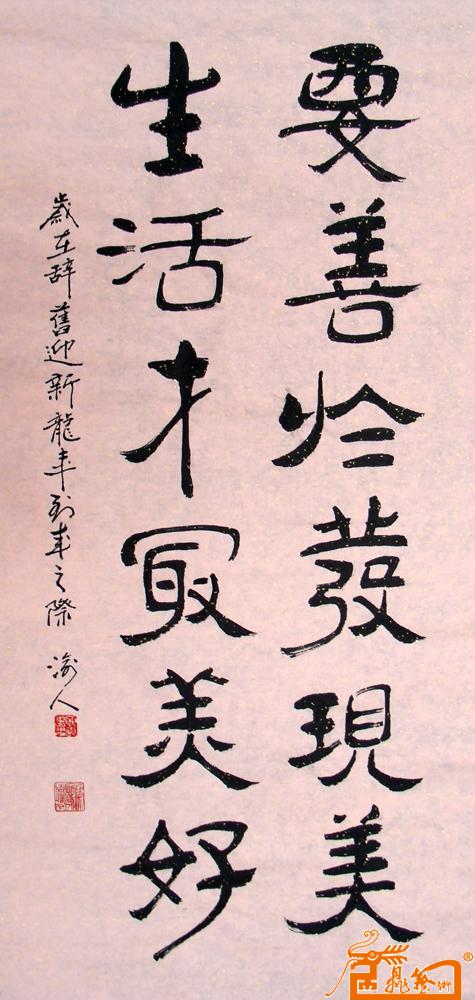 要善於發現美
生活才最美好
歲在辭舊迎新龍年到來之際 渝人